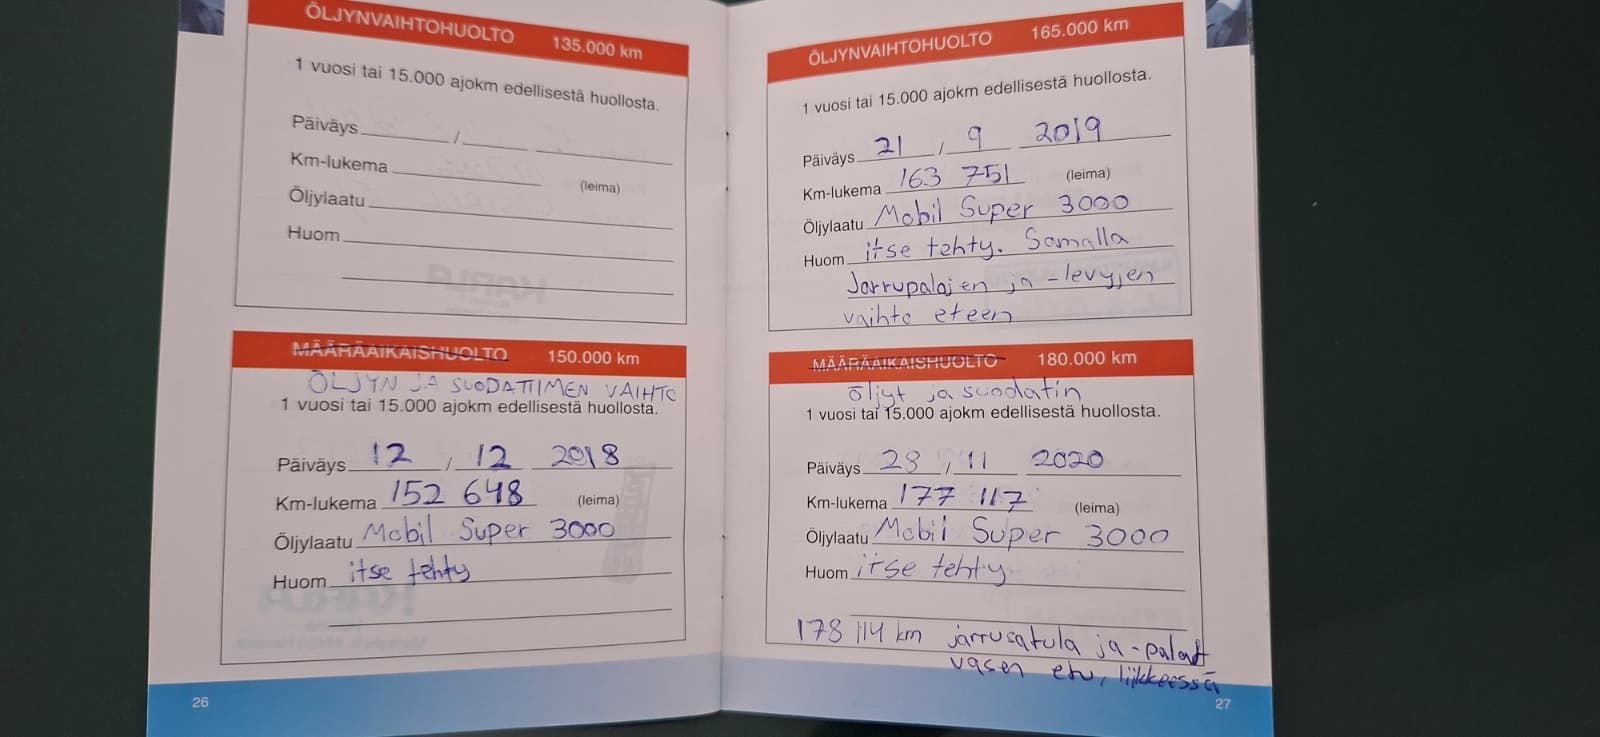 ÖLJYNVAIHTOHUOLTO 135.000 km
1 vuosi tai 15.000 ajokm edellisestä huollosta.
Päiväys /
Km-lukema (leima)
Öljylaatu
Huom
MÄÄRÄAIKAISHUOLTO 150.000 km
ÖLJYN JA SUODATTIMEN VAIHTO
1 vuosi tai 15.000 ajokm edellisestä huollosta.
Päiväys 12 / 12 2018
Km-lukema 152 648 (leima)
Öljylaatu Mobil Super 3000
Huom itse tehty
26
ÖLJYNVAIHTOHUOLTO 165.000 km
1 vuosi tai 15.000 ajokm edellisestä huollosta.
Päiväys 21 / 9 2019
Km-lukema 163 751 (leima)
Öljylaatu Mobil Super 3000
Huom itse tehty. Samalla
Jarrupalojen ja -levyjen
vaihto eteen
MÄÄRÄAIKAISHUOLTO 180.000 km
öljyt ja suodatin
1 vuosi tai 15.000 ajokm edellisestä huollosta.
Päiväys 28 / 11 2020
Km-lukema 177 117 (leima)
Öljylaatu Mobil Super 3000
Huom itse tehty
178 114 km jarrusatula ja -palat
vasen etu, liikkeessä
27